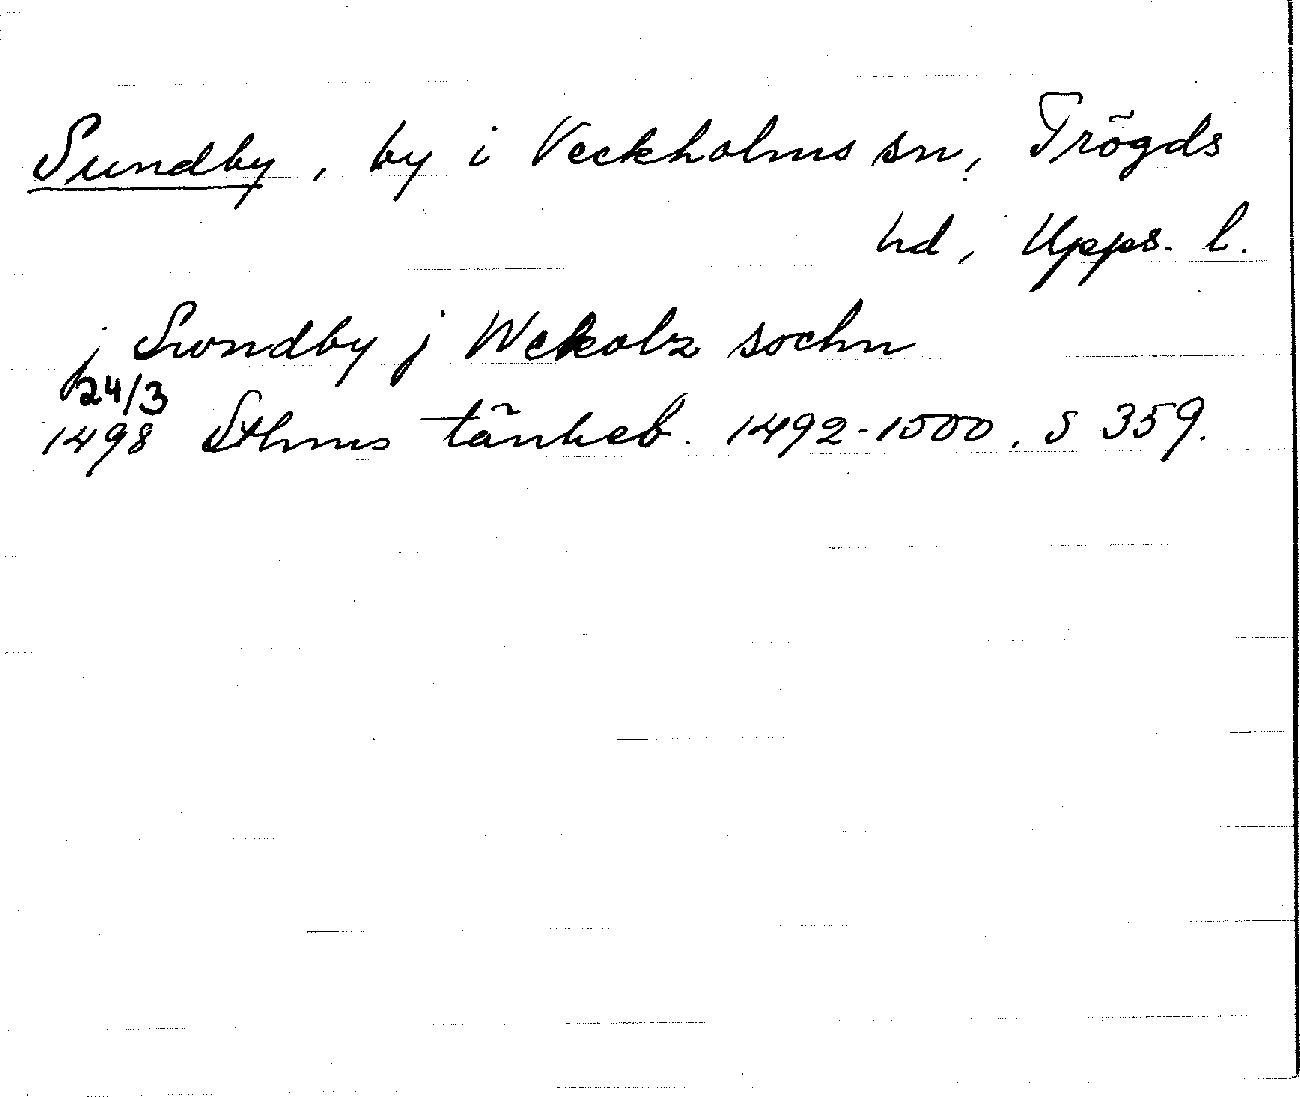 Sundby, by i Veckholms sn, Trögds
hd, Upps. l.
j Swndby j Wekolz sochn
24/3
1498 Sthms tänkeb. 1492-1500, S 359.